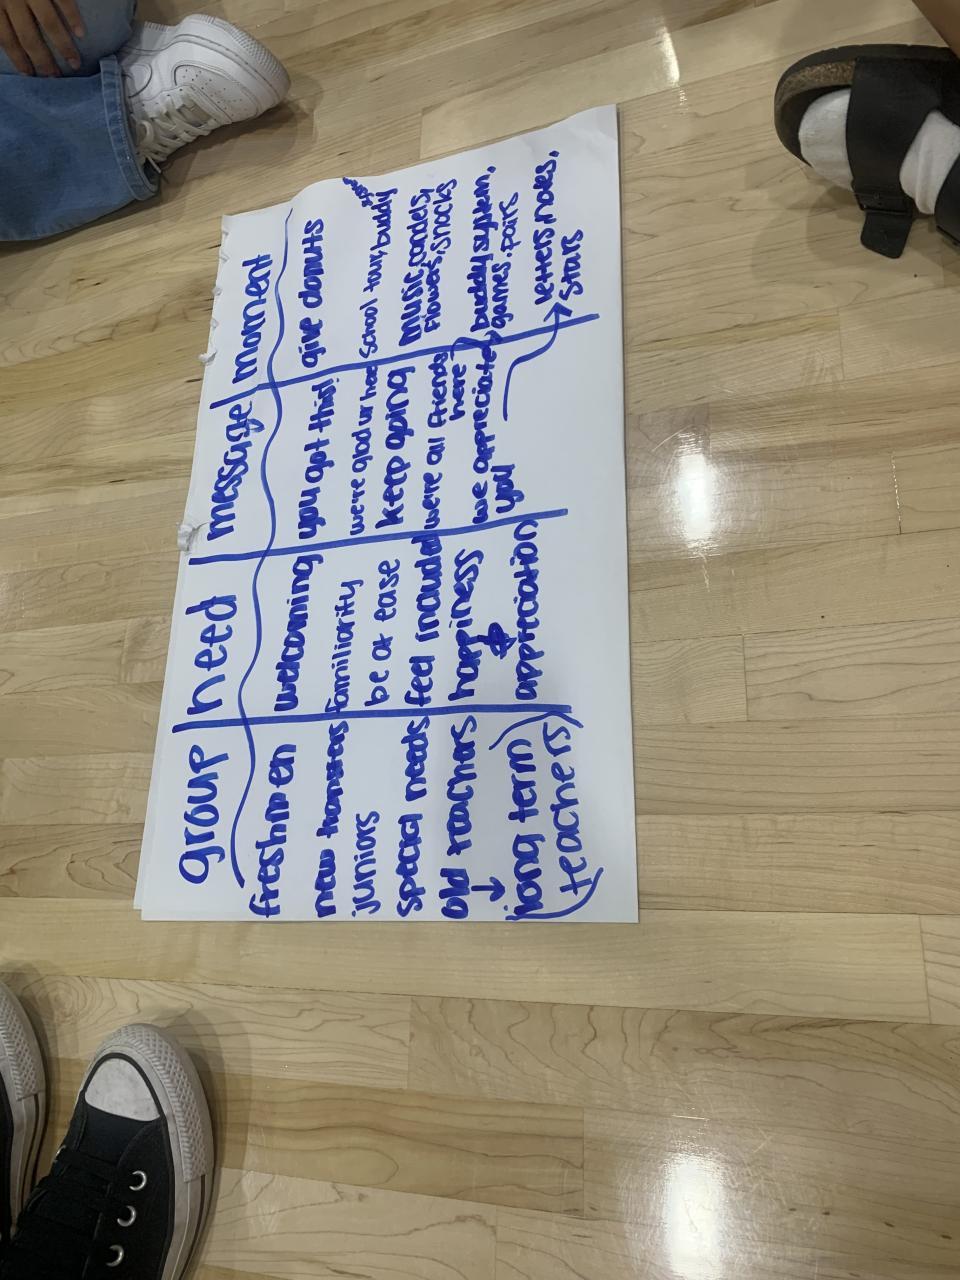 group | need | message | moment
freshmen welcoming you got this! give donuts
new transfers familiarity we're glad ur here school tour, buddy
juniors be at ease keep going music, candely, flowers, snacks
special needs feel included we're all friends here buddy system, games, pairs
old teachers happiness we appreciate you letters, notes, stars
↓
(long term teachers) & appreciation